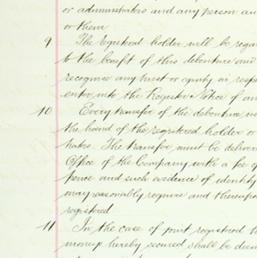 or administrators and any person
or them
9 The registered holder will be
to the benefit of this debenture and
recognise any trust or equity in
enter into the Register Notice of
10 Every transfer of the debenture
the hand of the registered holder or
The transfer must be
Office of the Company with a fee of
pence and such evidence of identity
may reasonably require and
registered
11 In the case of joint registered
moneys hereby secured shall be